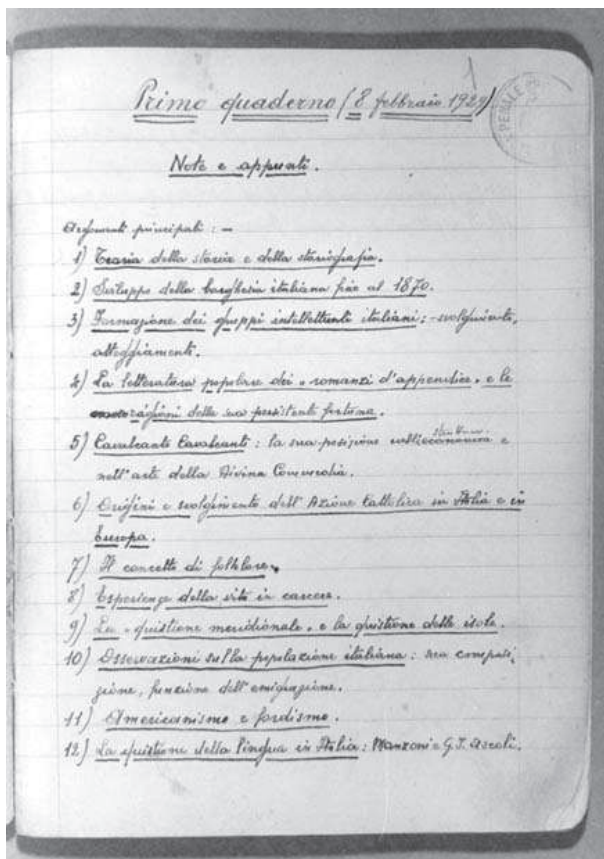 Primo quaderno (8 febbraio 1929)
Note e appunti.
Argomenti principali: —
1) Teoria della storia e della storiografia.
2) Sviluppo della borghesia italiana fino al 1870.
3) Formazione dei gruppi intellettuali italiani: – svolgimento,
atteggiamenti.
4) La letteratura popolare dei «romanzi d'appendice» e le
ragioni della sua persistente fortuna.
5) Cavalcante Cavalcanti: la sua posizione nella struttura e
nell'arte della Divina Commedia.
6) Origini e svolgimento dell'Azione Cattolica in Italia e in
Europa.
7) Il concetto di folklore.
8) Esperienze della vita in carcere.
9) La «quistione meridionale» e la quistione delle isole.
10) Osservazioni sulla popolazione italiana: sua composi-
zione, funzione dell'emigrazione.
11) Americanismo e fordismo.
12) La quistione della lingua in Italia: Manzoni e G. I. Ascoli.